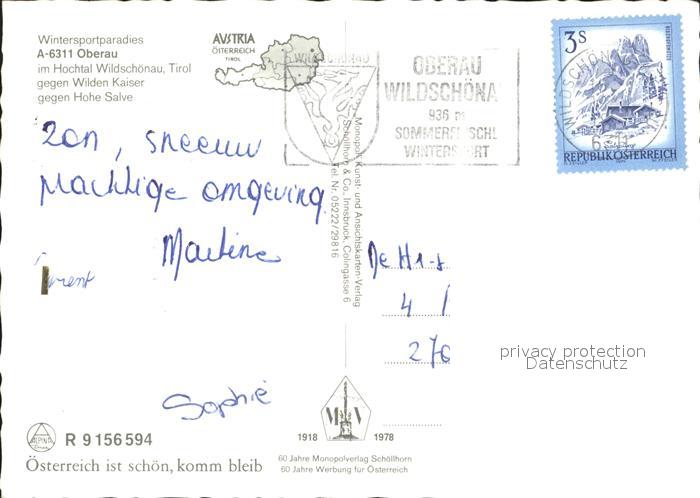 Wintersportparadies
A-6311 Oberau
im Hochtal Wildschönau, Tirol
gegen Wilden Kaiser
gegen Hohe Salve
AVSTRIA
ÖSTERREICH
TIROL
OBERAU
WILDSCHÖNA
936 m
SOMMERFRISCHE
WINTERSPORT
3S
REPUBLIK ÖSTERREICH
zon, sneeuw
prachtige omgeving
Martine
Sophie
Monopol, Kunst- und Ansichtskarten-Verlag
Schöllhorn & Co., Innsbruck, Colingasse 6
Tel. Nr. 05222/29816
4 /
276
privacy protection
Datenschutz
ALPINA
R 9156594
Österreich ist schön, komm bleib
1918 MV 1978
60 Jahre Monopolverlag Schöllhorn
60 Jahre Werbung für Österreich